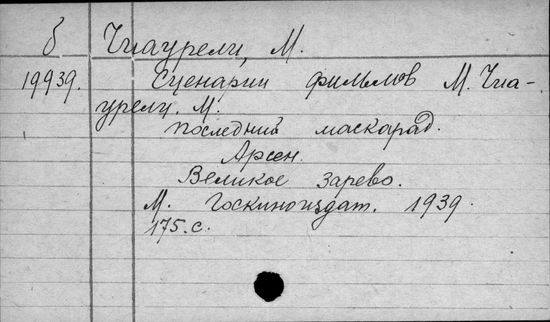 б Чиаурели, М.
19939. Сценарии фильмов М. Чиа-
урели. М.
Последний маскарад.
Арсен.
Великое зарево.
М. Госкиноиздат. 1939.
175.с.